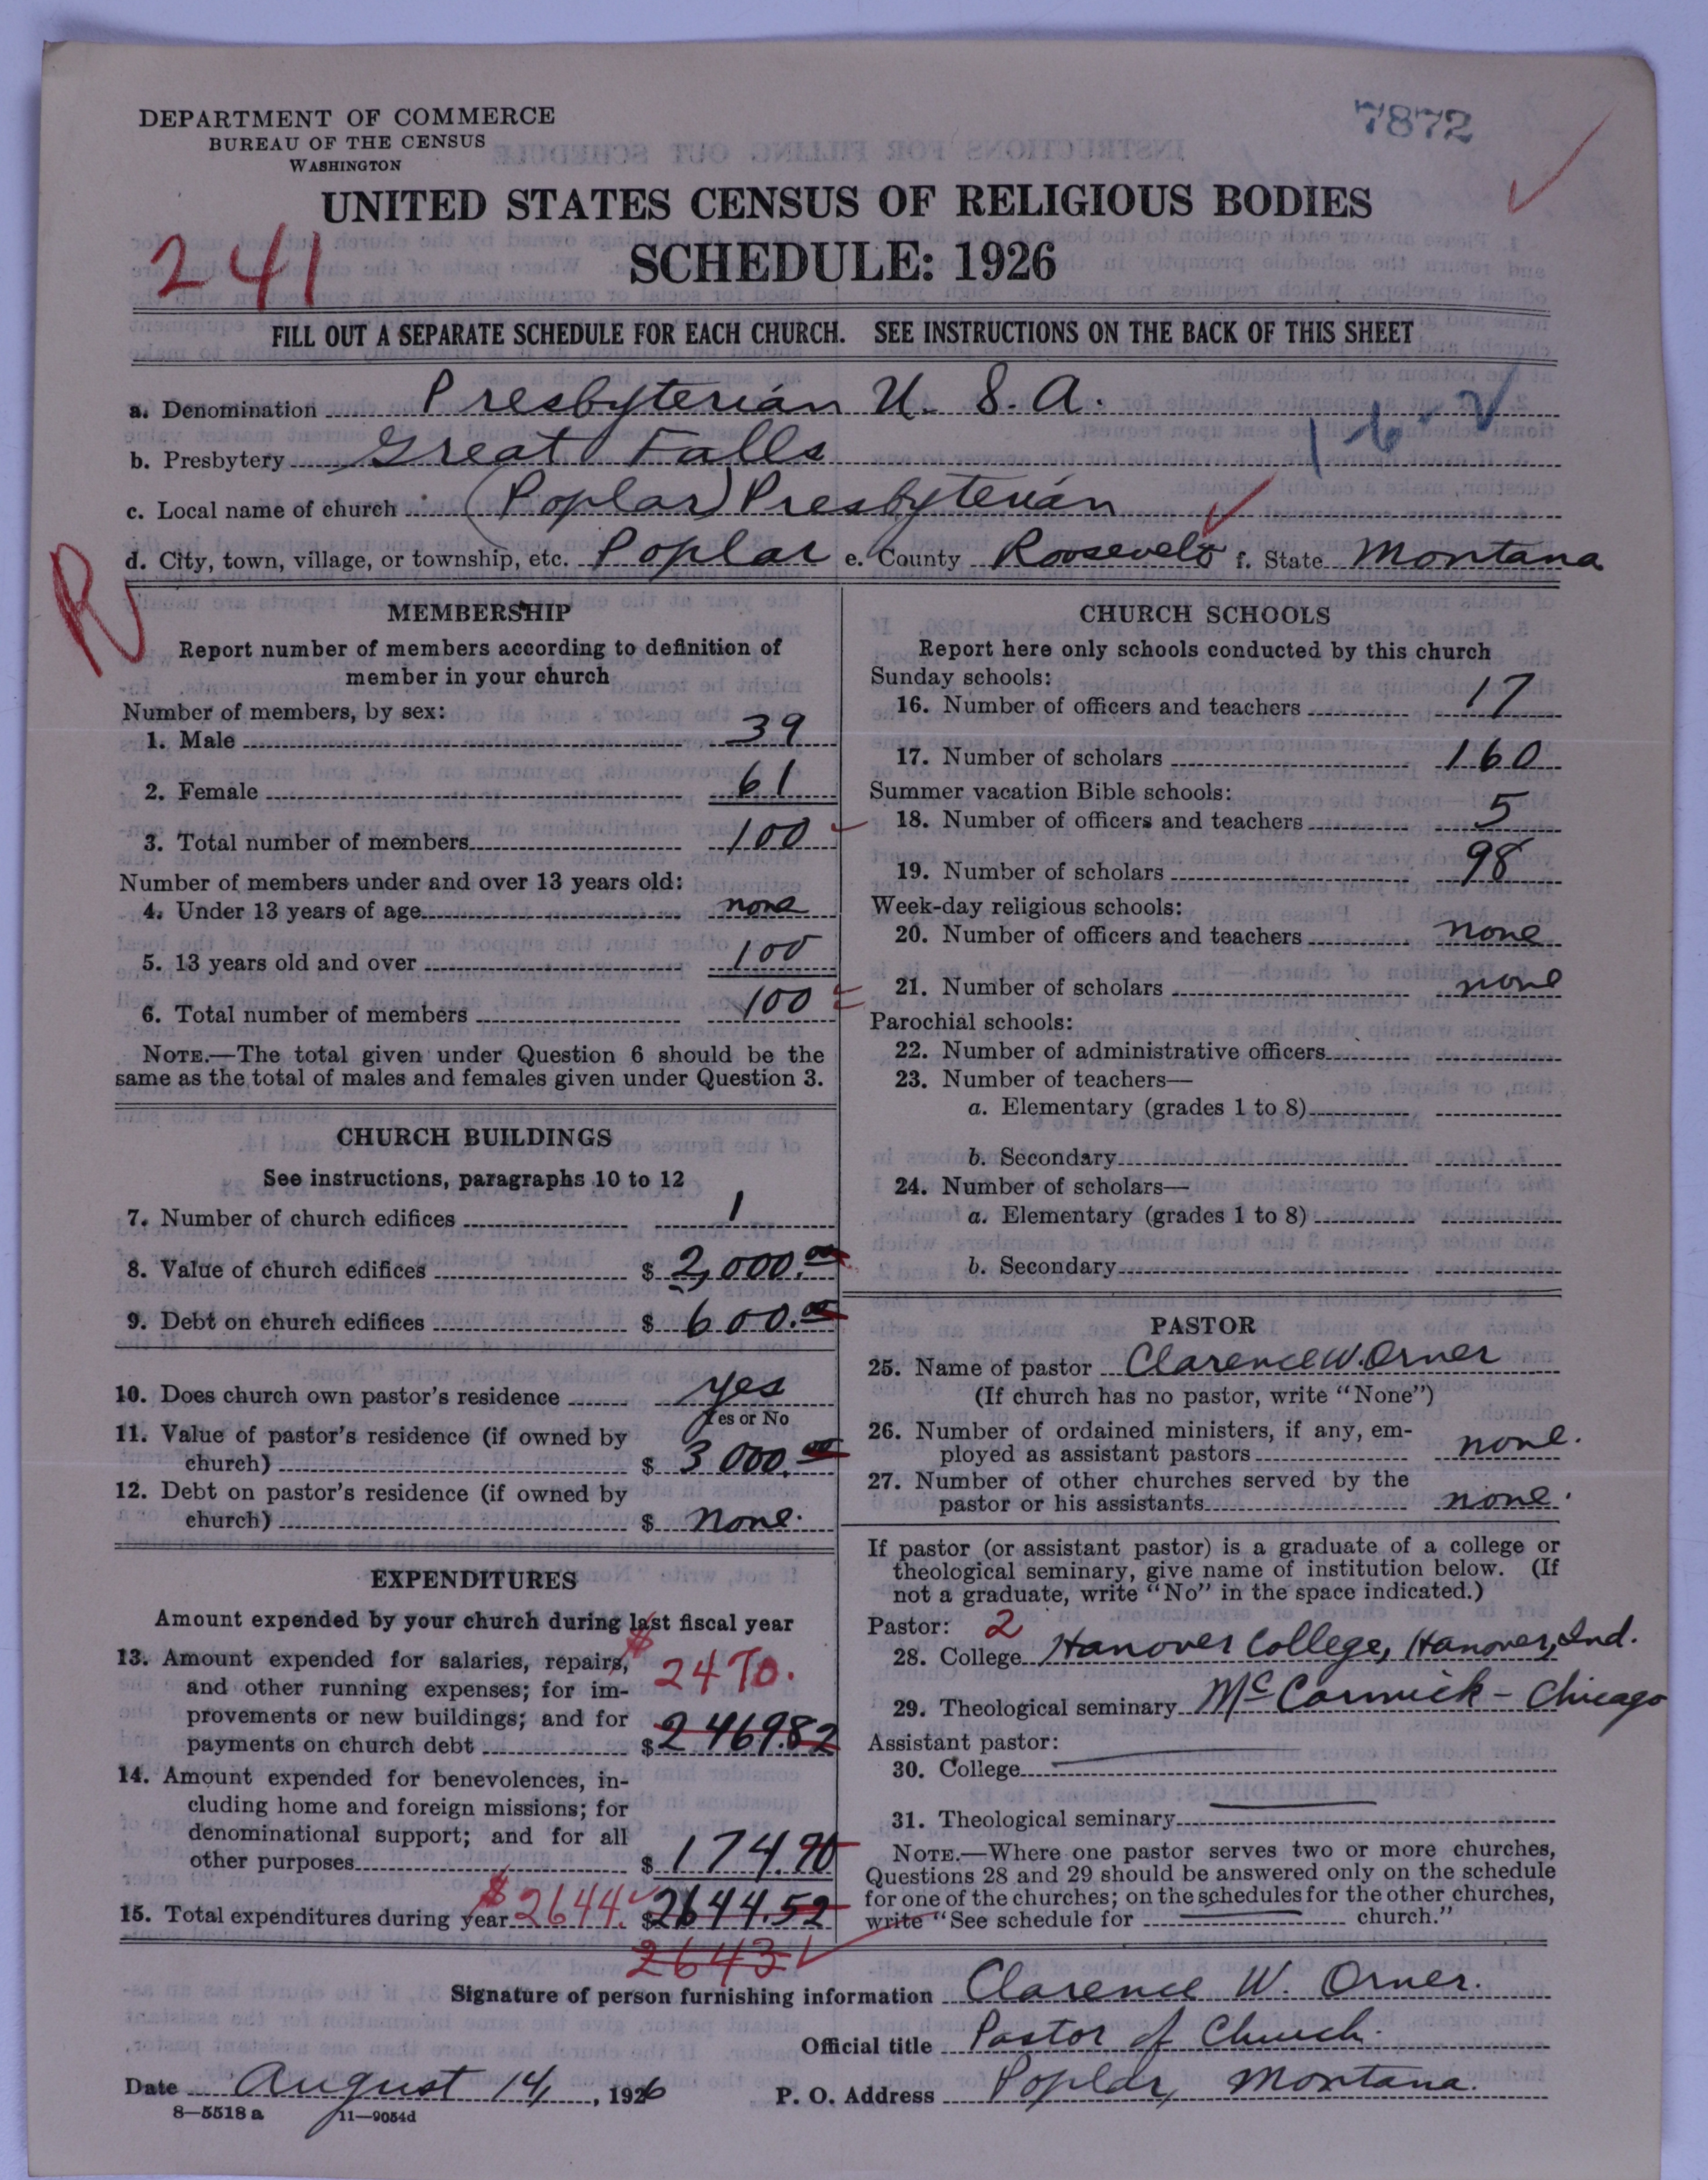 DEPARTMENT OF COMMERCE
BUREAU OF THE CENSUS
WASHINGTON
7872
UNITED STATES CENSUS OF RELIGIOUS BODIES
241
SCHEDULE: 1926
FILL OUT A SEPARATE SCHEDULE FOR EACH CHURCH. SEE INSTRUCTIONS ON THE BACK OF THIS SHEET
a. Denomination Presbyterian U. S. A.
1-6-2
b. Presbytery Great Falls
c. Local name of church (Poplar) Presbyterian
d. City, town, village, or township, etc. Poplar e. County Roosevelt f. State Montana
R
MEMBERSHIP
Report number of members according to definition of
member in your church
Number of members, by sex:
1. Male 39
2. Female 61
3. Total number of members 100
Number of members under and over 13 years old:
4. Under 13 years of age none
5. 13 years old and over 100
6. Total number of members 100
NOTE.—The total given under Question 6 should be the
same as the total of males and females given under Question 3.
CHURCH BUILDINGS
See instructions, paragraphs 10 to 12
7. Number of church edifices 1
8. Value of church edifices $ 2,000.00
9. Debt on church edifices $ 600.00
10. Does church own pastor's residence yes
Yes or No
11. Value of pastor's residence (if owned by
church) $ 3000.00
12. Debt on pastor's residence (if owned by
church) $ none.
EXPENDITURES
Amount expended by your church during last fiscal year
13. Amount expended for salaries, repairs, $ 2470.
and other running expenses; for im-
provements or new buildings; and for
payments on church debt $ 2469.82
14. Amount expended for benevolences, in-
cluding home and foreign missions; for
denominational support; and for all
other purposes $ 174.70
15. Total expenditures during year $2644. $2644.52
2643
CHURCH SCHOOLS
Report here only schools conducted by this church
Sunday schools:
16. Number of officers and teachers 17
17. Number of scholars 160
Summer vacation Bible schools:
18. Number of officers and teachers 5
19. Number of scholars 98
Week-day religious schools:
20. Number of officers and teachers none
21. Number of scholars none
Parochial schools:
22. Number of administrative officers
23. Number of teachers—
a. Elementary (grades 1 to 8)
b. Secondary
24. Number of scholars—
a. Elementary (grades 1 to 8)
b. Secondary
PASTOR
25. Name of pastor Clarence W. Orner
(If church has no pastor, write "None")
26. Number of ordained ministers, if any, em-
ployed as assistant pastors none.
27. Number of other churches served by the
pastor or his assistants none.
If pastor (or assistant pastor) is a graduate of a college or
theological seminary, give name of institution below. (If
not a graduate, write "No" in the space indicated.)
Pastor: 2
28. College Hanover College, Hanover, Ind.
29. Theological seminary McCormick - Chicago
Assistant pastor:
30. College
31. Theological seminary
NOTE.—Where one pastor serves two or more churches,
Questions 28 and 29 should be answered only on the schedule
for one of the churches; on the schedules for the other churches,
write "See schedule for church."
Signature of person furnishing information Clarence W. Orner.
Official title Pastor of Church.
Date August 14, 1926 P. O. Address Poplar, Montana.
8—5518 a 11—9054d